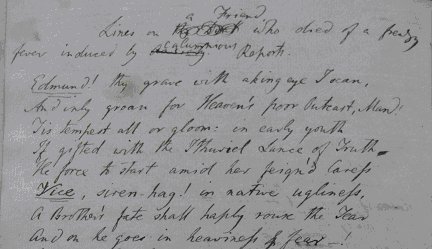 a Friend
Lines on who died of a frenzy
fever induced by calumnious Reports.
Edmund! thy grave with aking eye I scan,
And only groan for Heaven's poor Outcast, Man!
Tis tempest all or gloom: in early youth
If gifted with the Ithuriel Lance of Truth
He force to start amid her feign'd Caress
Vice, siren-hag! in native ugliness,
A Brother's fate shall haply rouse the Tear
And on he goes in heaviness & fear—!